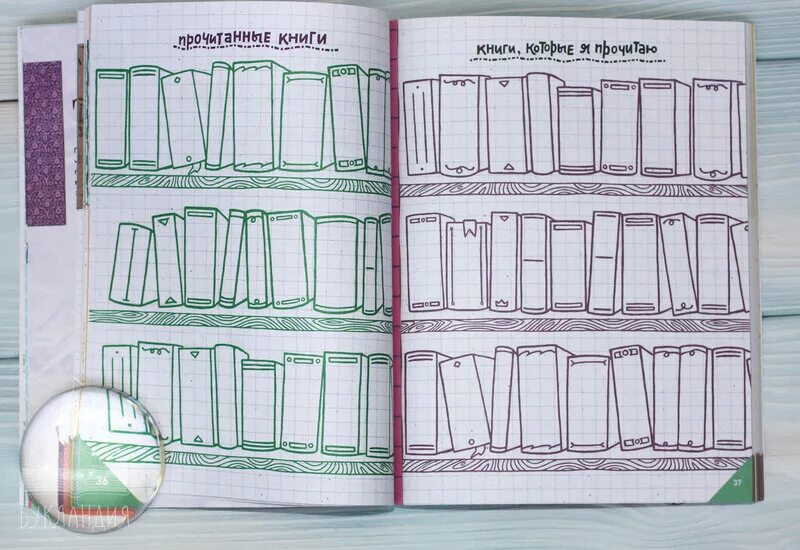 прочитанные книги
книги, которые я прочитаю
36
37
БУКЛАНДИЯ